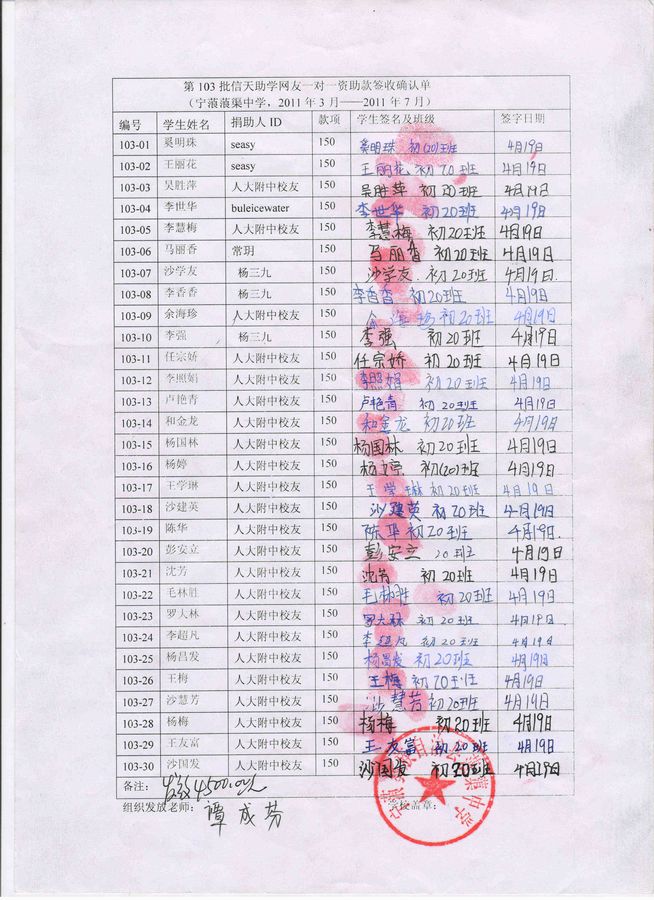 第 103 批信天助学网友一对一资助款签收确认单
（宁蒗蒗渠中学，2011 年 3 月——2011 年 7 月）
编号 学生姓名 捐助人 ID 款项 学生签名及班级 签字日期
103-01 奚明珠 seasy 150 奚明珠 初(20)班 4月19日
103-02 王丽花 seasy 150 王丽花 初20班 4月19日
103-03 吴胜萍 人大附中校友 150 吴胜萍 初20班 4月19日
103-04 李世华 buleicewater 150 李世华 初20班 4月19日
103-05 李慧梅 人大附中校友 150 李慧梅 初20班 4月19日
103-06 马丽香 常玥 150 马丽香 初20班 4月19日
103-07 沙学友 杨三九 150 沙学友. 初20班 4月19日.
103-08 李香香 杨三九 150 李香香 初20班 4月19日
103-09 余海珍 人大附中校友 150 余海珍 初20班 4月19日
103-10 李强 杨三九 150 李强 初20班 4月19日
103-11 任宗娇 人大附中校友 150 任宗娇 初20班 4月19日
103-12 李照娟 人大附中校友 150 李照娟 初20班 4月19日
103-13 卢艳青 人大附中校友 150 卢艳青 初20班 4月19日
103-14 和金龙 人大附中校友 150 和金龙 初20班 4月19日
103-15 杨国林 人大附中校友 150 杨国林 初20班 4月19日
103-16 杨婷 人大附中校友 150 杨婷 初(20)班 4月19日
103-17 王学琳 人大附中校友 150 王学琳 初20班 4月19日
103-18 沙建英 人大附中校友 150 沙建英 初20班 4月19日
103-19 陈华 人大附中校友 150 陈华 初20班 4月19日.
103-20 彭安立 人大附中校友 150 彭安立 20班 4月19日
103-21 沈芳 人大附中校友 150 沈芳 初20班 4月19日
103-22 毛林胜 人大附中校友 150 毛林胜 初20班 4月19日
103-23 罗大林 人大附中校友 150 罗大林 初20班 4月19日
103-24 李超凡 人大附中校友 150 李超凡 初20班 4月19日
103-25 杨昌发 人大附中校友 150 杨昌发 初20班 4月19日
103-26 王梅 人大附中校友 150 王梅 初20班 4月19日
103-27 沙慧芳 人大附中校友 150 沙慧芳 初20班 4月19日
103-28 杨梅 人大附中校友 150 杨梅 初20班 4月19日
103-29 王友富 人大附中校友 150 王友富 初20班 4月19日
103-30 沙国发 人大附中校友 150 沙国发 初20班 4月19日
备注： 4500.00元
组织发放老师： 谭成芬 学校盖章：